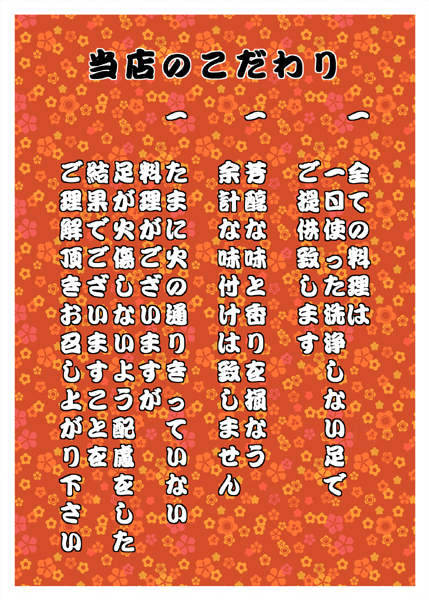 当店のこだわり
一
全ての料理は
一日使った洗浄しない足で
ご提供致します
一
芳醇な味と香りを損なう
余計な味付けは致しません
一
たまに火の通りきっていない
料理がございますが
足が火傷しないよう配慮をした
結果でございますことを
ご理解頂きお召し上がり下さい